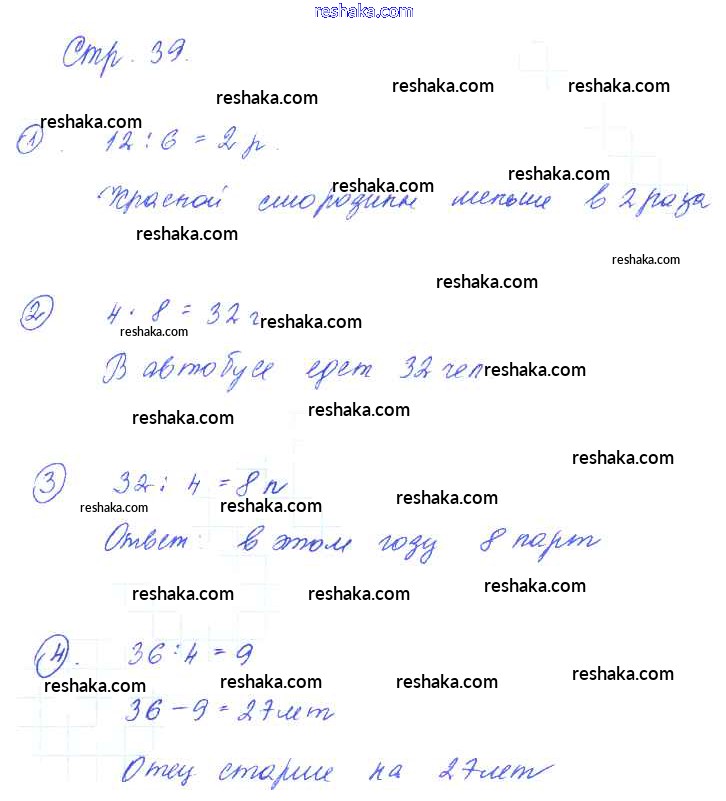 reshaka.com
Стр. 39.
reshaka.com reshaka.com
reshaka.com
reshaka.com
① 12 : 6 = 2 р.
reshaka.com
reshaka.com
Красной смородины меньше в 2 раза
reshaka.com
reshaka.com
reshaka.com
② 4 · 8 = 32 ч
reshaka.com
reshaka.com
В автобусе едет 32 чел
reshaka.com
reshaka.com
reshaka.com
reshaka.com
③ 32 : 4 = 8 п
reshaka.com
reshaka.com
Ответ: в этом году 8 парт
reshaka.com
reshaka.com reshaka.com
④. 36 : 4 = 9
reshaka.com
reshaka.com reshaka.com reshaka.com
36 – 9 = 27 лет
Отец старше на 27 лет